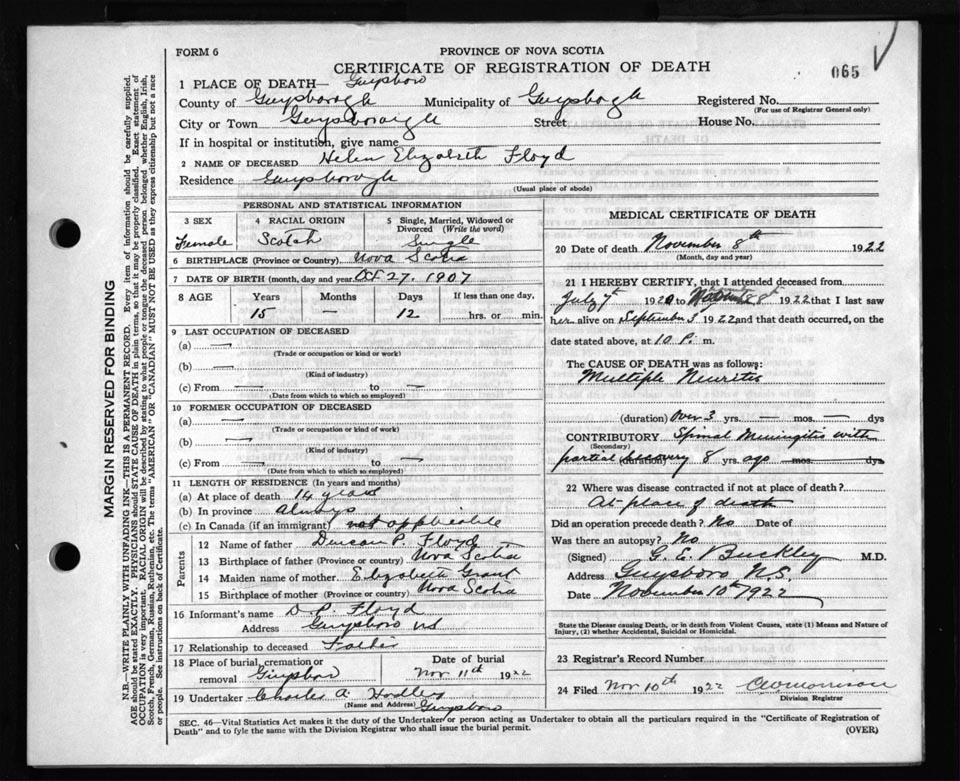 FORM 6
PROVINCE OF NOVA SCOTIA
CERTIFICATE OF REGISTRATION OF DEATH
065
1 PLACE OF DEATH— Guysboro
County of Guysborogh Municipality of Guysbogh Registered No.
(For use of Registrar General only)
City or Town Guysborough Street House No.
If in hospital or institution, give name
2 NAME OF DECEASED Helen Elizabeth Floyd
Residence Guysborogh
(Usual place of abode)
PERSONAL AND STATISTICAL INFORMATION
3 SEX 4 RACIAL ORIGIN 5 Single, Married, Widowed or Divorced (Write the word)
Female Scotch Single
6 BIRTHPLACE (Province or Country) Nova Scotia
7 DATE OF BIRTH (month, day and year Oct 27, 1907
8 AGE Years Months Days If less than one day,
15 — 12 hrs. or min.
9 LAST OCCUPATION OF DECEASED
(a) —
(Trade or occupation or kind or work)
(b) —
(Kind of industry)
(c) From — to —
(Date from which to which so employed)
10 FORMER OCCUPATION OF DECEASED
(a) —
(Trade or occupation or kind of work)
(b) —
(Kind of industry)
(c) From — to —
(Date from which to which so employed)
11 LENGTH OF RESIDENCE (In years and months)
(a) At place of death 14 years
(b) In province always
(c) In Canada (if an immigrant) not applicable
Parents
12 Name of father Duncan P. Floyd
13 Birthplace of father (Province or country) Nova Scotia
14 Maiden name of mother Elizabeth Grant
15 Birthplace of mother (Province or country) Nova Scotia
16 Informant's name D. P. Floyd
Address Guysboro NS
17 Relationship to deceased Father
18 Place of burial, cremation or removal Guysboro
Date of burial
Nov 11th 1922
19 Undertaker Charles A.
(Name and Address) Guysboro
MEDICAL CERTIFICATE OF DEATH
20 Date of death November 8th 1922
(Month, day and year)
21 I HEREBY CERTIFY, that I attended deceased from
July 7th 192 to November 8th 1922 that I last saw
her alive on September 3 1922 and that death occurred, on the
date stated above, at 10 P. m.
The CAUSE OF DEATH was as follows:
Multiple Neuritis
(duration) Over 3 yrs. — mos. — dys
CONTRIBUTORY Spinal Miningitis with
(Secondary)
partial recovery (duration) 8 yrs. ago — mos. dys
22 Where was disease contracted if not at place of death?
At place of death
Did an operation precede death? No Date of
Was there an autopsy? No.
(Signed) G. E. Buckley M.D.
Address Guysboro N.S.
Date November 10th 1922
State the Disease causing Death, or in death from Violent Causes, state (1) Means and Nature of
Injury, (2) whether Accidental, Suicidal or Homicidal.
23 Registrar's Record Number
24 Filed Nov 10th 1922
Division Registrar
SEC. 46—Vital Statistics Act makes it the duty of the Undertaker or person acting as Undertaker to obtain all the particulars required in the "Certificate of Registration of
Death" and to fyle the same with the Division Registrar who shall issue the burial permit.
(OVER)
MARGIN RESERVED FOR BINDING
N.B.—WRITE PLAINLY WITH UNFADING INK—THIS IS A PERMANENT RECORD. Every item of information should be carefully supplied.
AGE should be stated EXACTLY. PHYSICIANS should STATE CAUSE OF DEATH in plain terms, so that it may be properly classified. Exact statement of
OCCUPATION is very important. RACIAL ORIGIN will be described by stating to what people or tongue the deceased person belonged whether English, Irish,
Scotch, French, German, Russian, Ruthenian, etc. The terms "AMERICAN" OR "CANADIAN" MUST NOT BE USED as they express citizenship but not a race
or people. See instructions on back of Certificate.